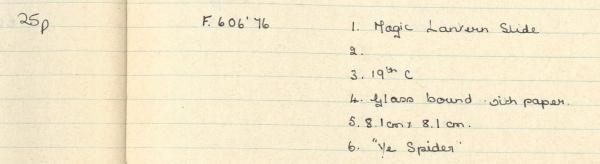 25p
F. 606'76
1. Magic Lantern Slide
2.
3. 19th C
4. Glass bound with paper.
5. 8.1cm x 8.1 cm.
6. "Ye Spider"